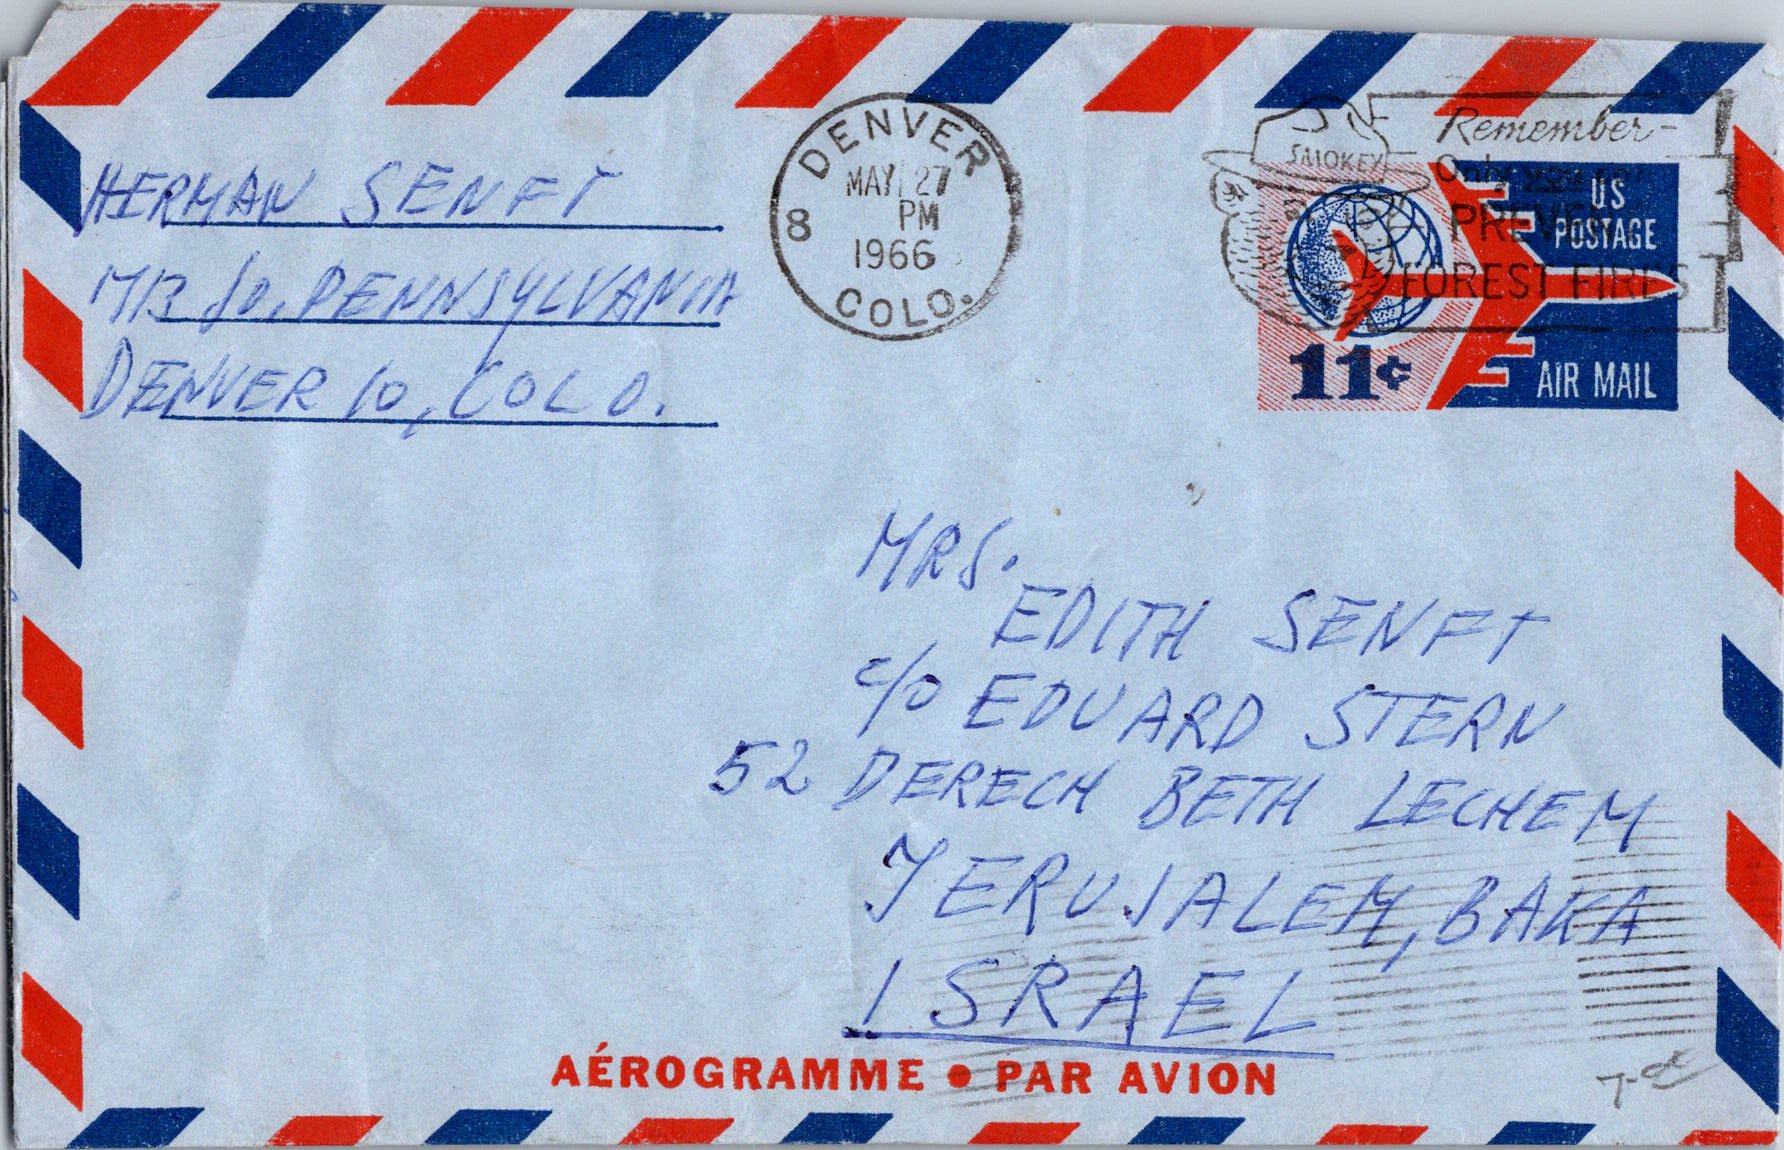 HERMAN SENFT
1713 So. PENNSYLVANIA
DENVER 10, COLO.
DENVER
MAY 27
8 PM
1966
COLO.
SMOKEY
Remember-
Only you can
PREVENT
FOREST FIRES
US
POSTAGE
11¢
AIR MAIL
MRS.
EDITH SENFT
c/o EDUARD STERN
52 DERECH BETH LECHEM
JERUSALEM, BAKA
ISRAEL
AÉROGRAMME • PAR AVION